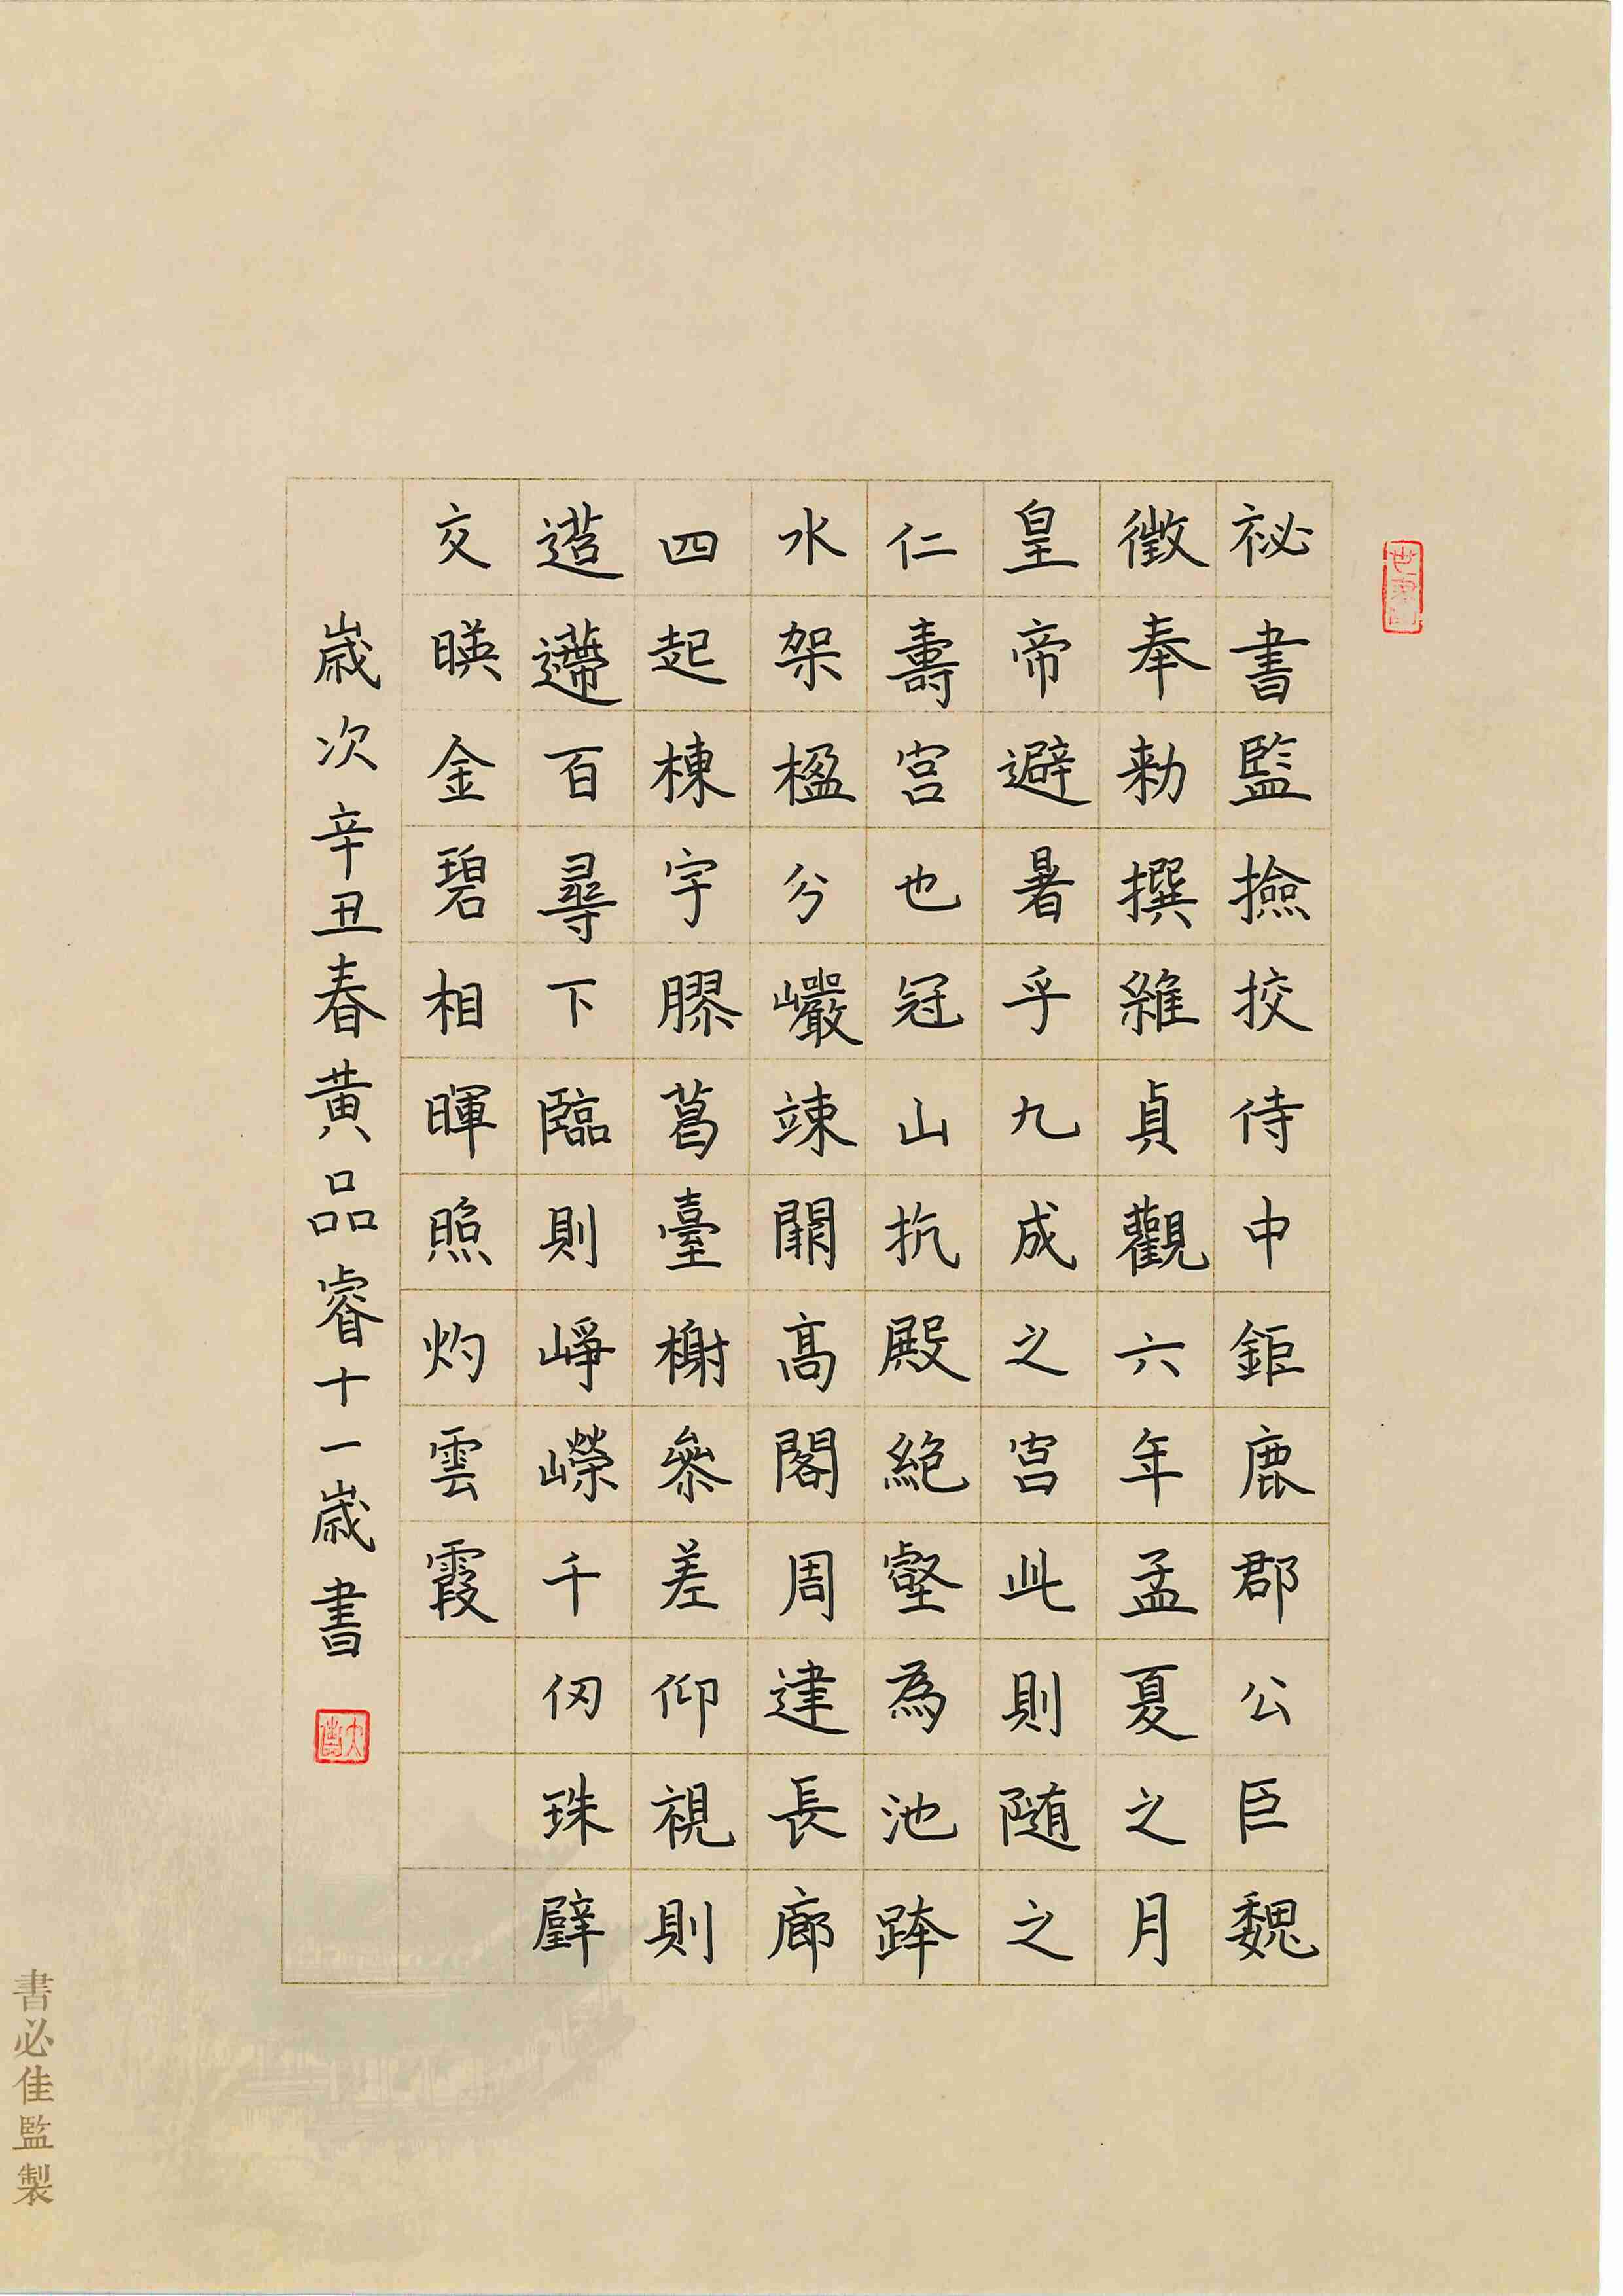 祕書監撿挍侍中鉅鹿郡公臣魏
徵奉勑撰維貞觀六年孟夏之月
皇帝避暑乎九成之宮此則随之
仁壽宮也冠山抗殿絶壑為池跨
水架楹分巖竦闕高閣周建長廊
四起棟宇膠葛臺榭參差仰視則
迢遰百尋下臨則崢嶸千仞珠璧
交暎金碧相暉照灼雲霞
歲次辛丑春黄品睿十一歲書
書必佳監製